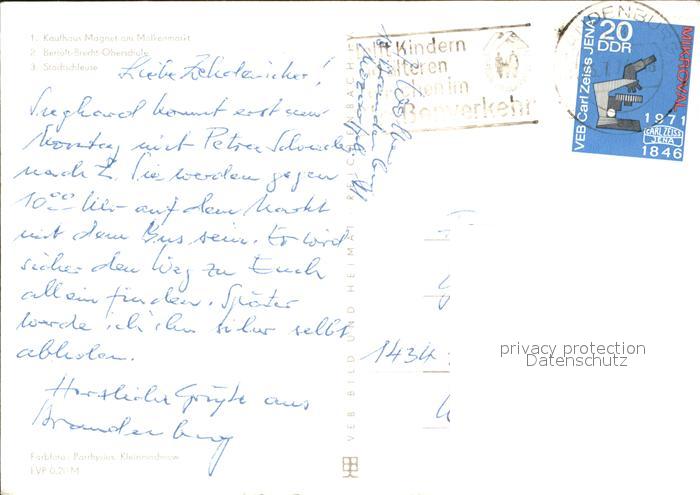 1. Kaufhaus Magnet am Molkenmarkt
2. Bertolt-Brecht-Oberschule
3. Stadtschleuse
Liebe Zehdenicker!
Sieghard kommt erst am
Montag mit Petra
nach Z. Sie werden gegen
10⁰⁰ Uhr auf dem Markt
mit dem Bus sein. Er wird
sicher den Weg zu Euch
allein finden. Später
werde ich ihn sicher selbst
abholen.
Herzliche Grüße aus
Brandenburg
Farbfoto: Parthysius, Kleinmachnow
EVP 0,20 M
VEB BILD UND HEIMAT REICHENBACH I. V.
Brandenburg
Kindern
Älteren
im
verkehr
BRANDENBURG
20
DDR
VEB Carl Zeiss JENA
MIKROVAL
1971
CARL ZEISS
JENA
1846
1434
privacy protection
Datenschutz